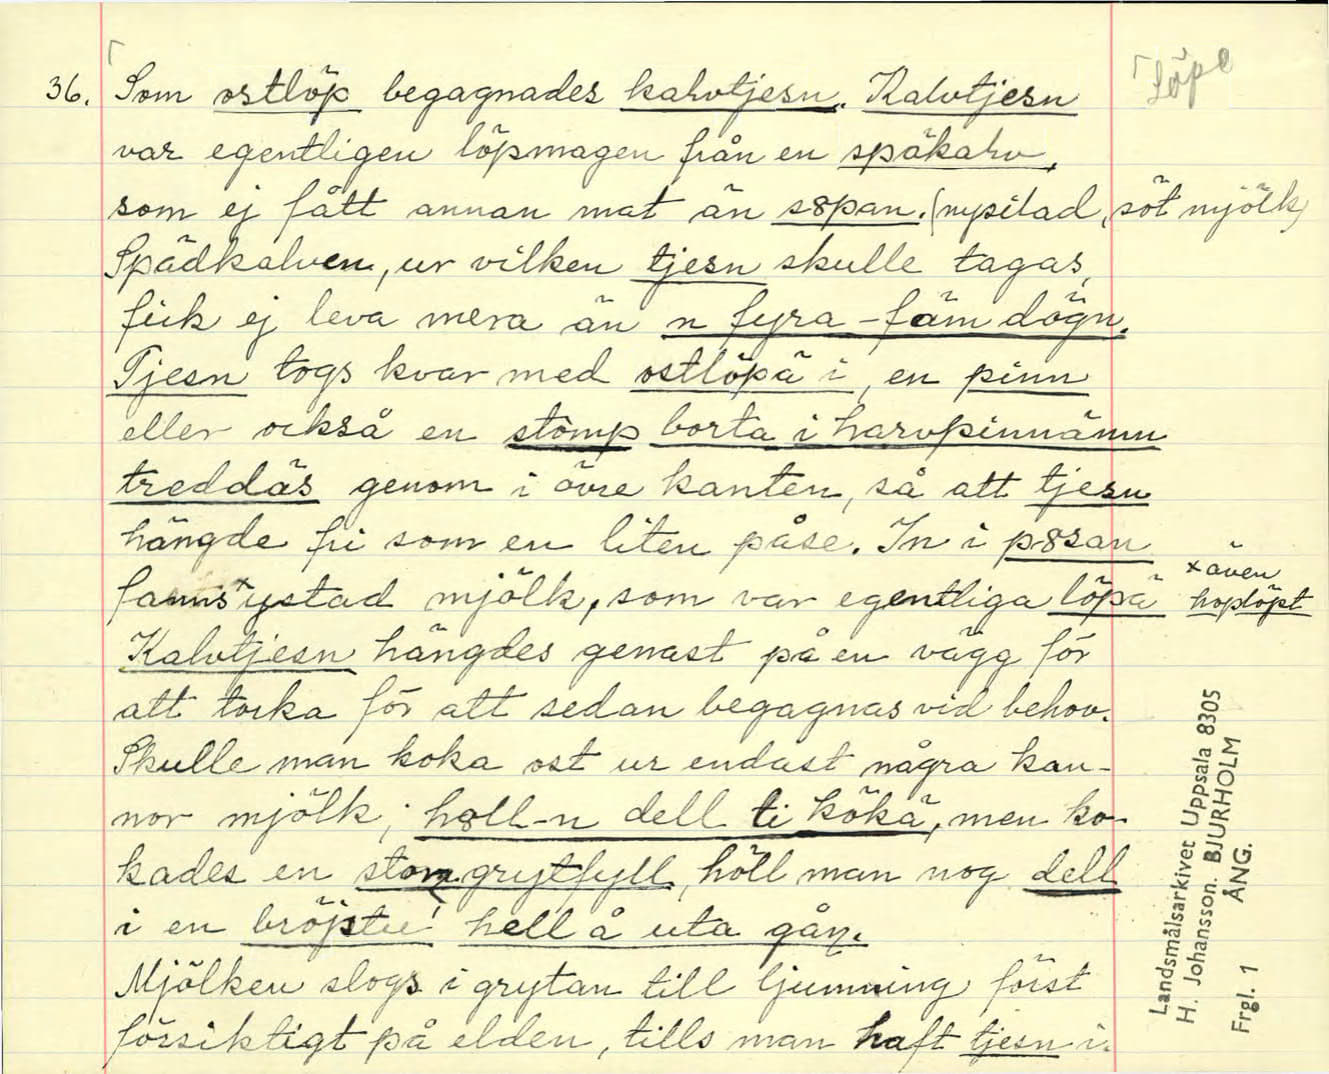 36. Som ostlöp begagnades kalvtjesn. Kalvtjesn
var egentligen löpmagen från en späkalv,
som ej fått annan mat än s8pan. (nysilad, söt mjölk)
Spädkalven, ur vilken tjesn skulle tagas,
fick ej leva mera än n fyra-fäm dögn.
Tjesn togs kvar med ostlöpä i, en pinn
eller också en stömp borta i harvpinnämn
treddäs genom i övre kanten, så att tjesn
hängde fri som en liten påse. In i p8san
fanns x ystad mjölk, som var egentliga löpä
x även
hoplöpt
Kalvtjesn hängdes genast på en vägg för
att torka för att sedan begagnas vid behov.
Skulle man koka ost ur endast några kan-
nor mjölk, h8ll-n dell ti kökä, men ko-
kades en stor grytfyll, höll man nog dell
i en bröjstu! hell å uta gån.
Mjölken slogs i grytan till ljumning först
försiktigt på elden, tills man haft tjesn i.
löpe
Landsmålsarkivet Uppsala 8305
H. Johansson. BJURHOLM
Frgl. 1 ÅNG.